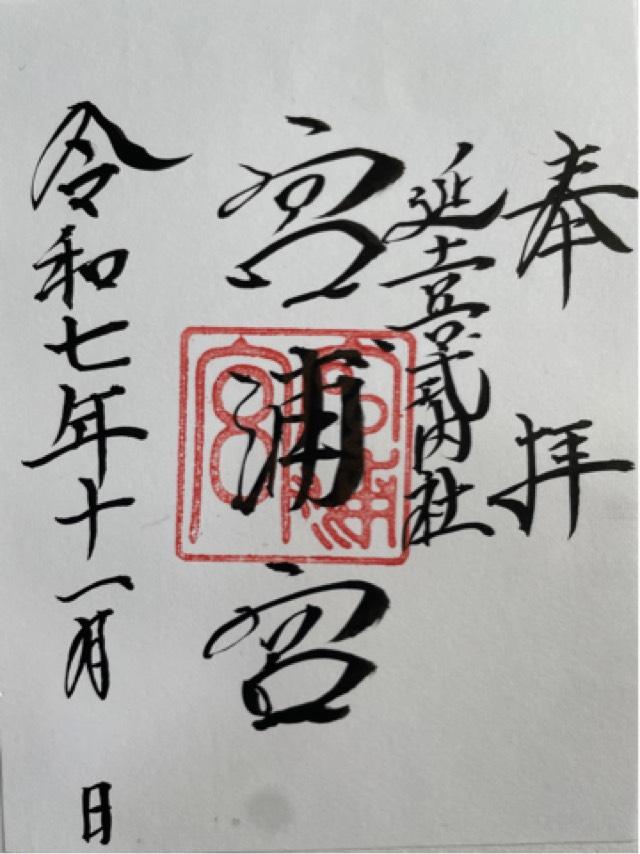 奉拝
延喜式内社
宮浦宮
令和七年十一月 日